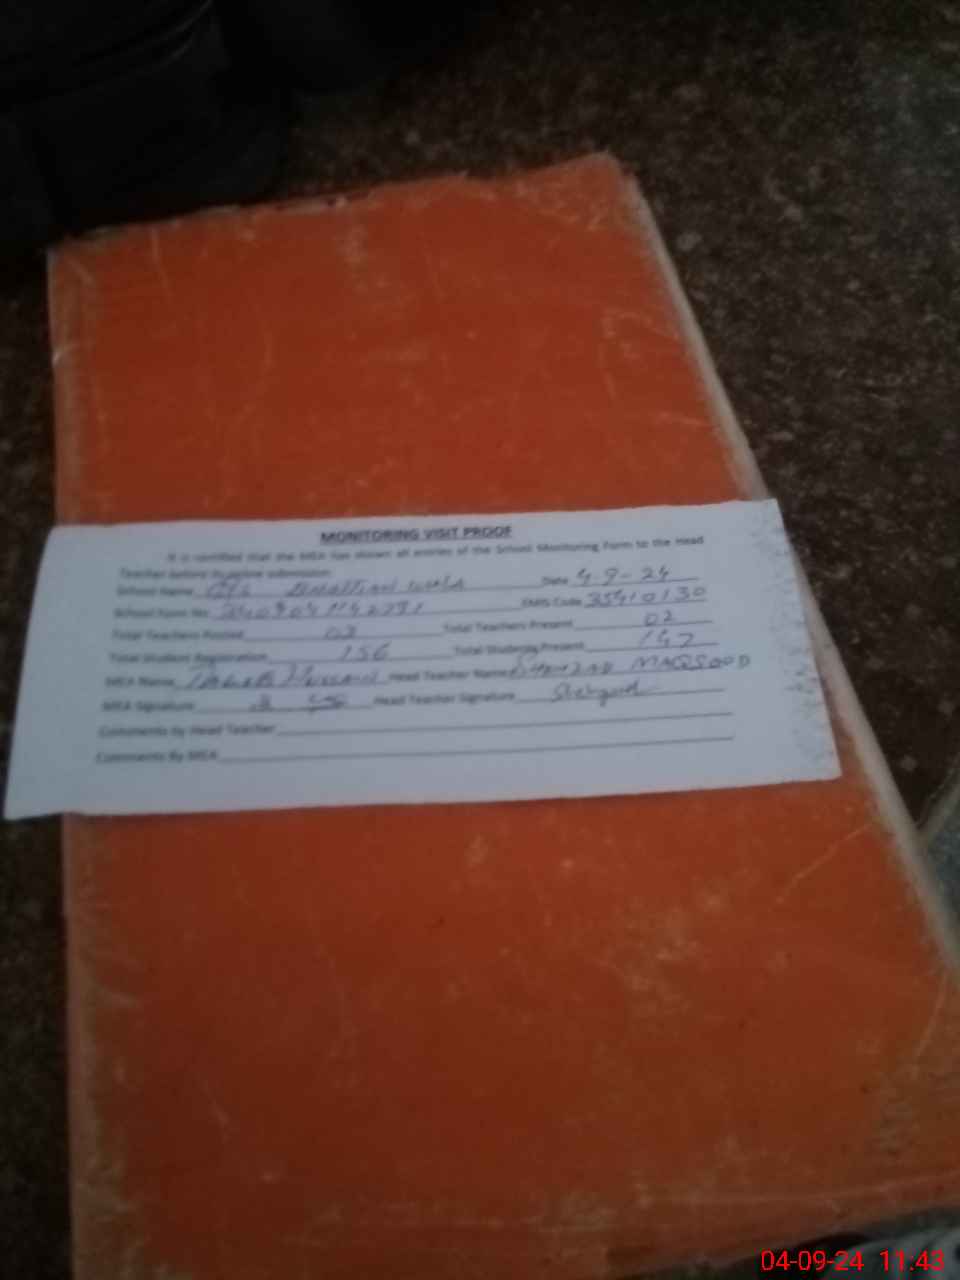 MONITORING VISIT PROOF
It is certified that the MEA has shown all entries of the School Monitoring Form to the Head
Teacher before its online submission
School Name Date 4-9-24
School Form No EMIS Code 35410130
Total Teachers Posted 03 Total Teachers Present 02
Total Student Registration 156 Total Students Present 147
MEA Name Hussain Head Teacher Name MAQSOOD
MEA Signature Head Teacher Signature
Comments by Head Teacher
Comments By MEA
04-09-24 11:43